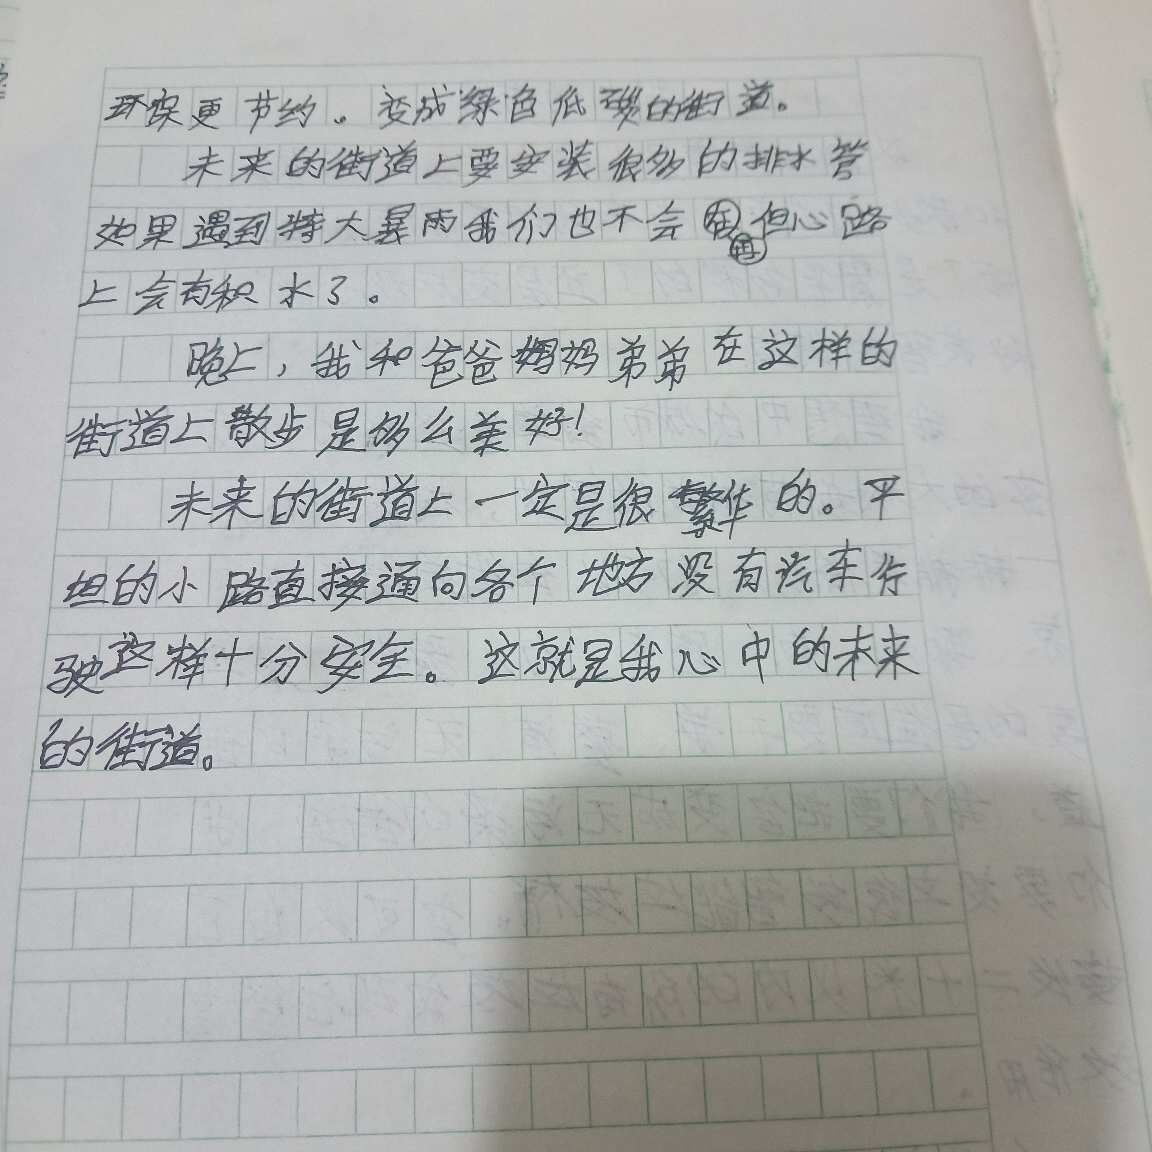 环保更节约。变成绿色低碳的街道。
未来的街道上要安装很多的排水管
如果遇到特大暴雨我们也不会再但心路
上会有积水了。
晚上，我和爸爸妈妈弟弟在这样的
街道上散步是多么美好！
未来的街道上一定是很繁华的。平
坦的小路直接通向各个地方没有汽车行
驶这样十分安全。这就是我心中的未来
的街道。